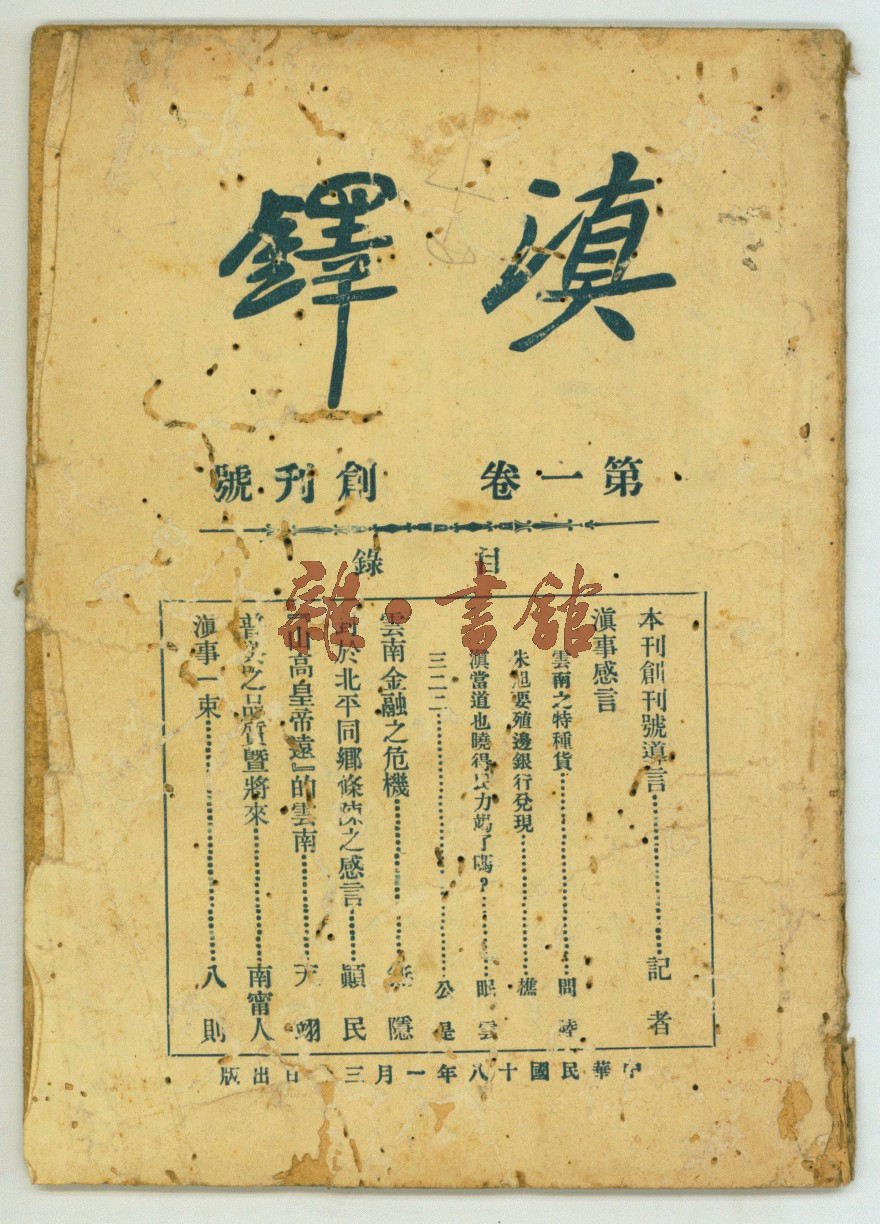 滇鐸
第一卷 創刊號
目錄
雜·書館
本刊創刊號導言 記者
滇事感言
雲南之特種貨 問陸
朱旭要殖邊銀行兌現 樵
滇當道也曉得民力竭了嗎? 眠雲
三二二 公是
雲南金融之危機 隱
於北平同鄉條陳之感言 顛民
山高皇帝遠』的雲南 天翊
普洱之品質暨將來 南甯人
滇事一束 八則
中華民國十八年一月三 日出版